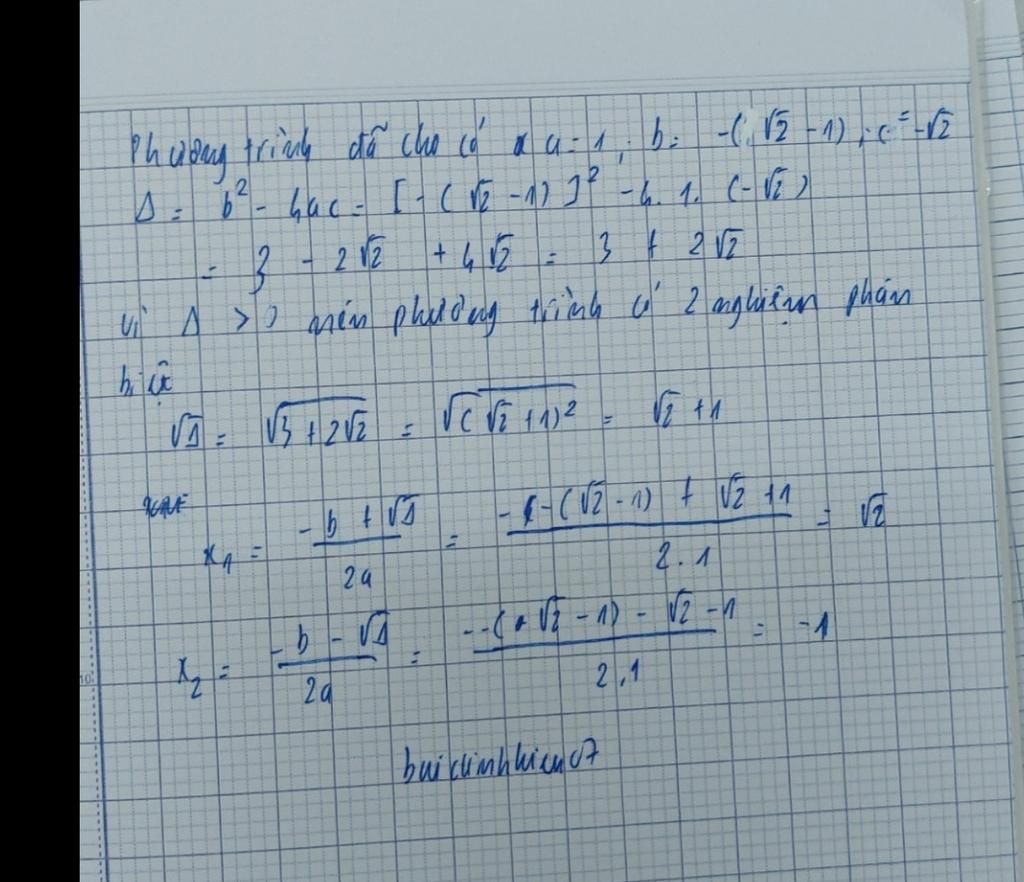 Phương trình đã cho có a = 1 ; b = -( √2 - 1) ; c = -√2
Δ = b² - 4ac = [ - ( √2 - 1) ]² - 4. 1. (-√2)
= 3 - 2√2 + 4√2 = 3 + 2√2
vì Δ > 0 nên phương trình có 2 nghiệm phân
biệt
√Δ = √(3 + 2√2) = √((√2 + 1)²) = √2 + 1
x₁ = (-b + √Δ)/(2a) = (- - (√2 - 1) + √2 + 1)/(2 . 1) = √2
x₂ = (-b - √Δ)/(2a) = (- - (√2 - 1) - √2 - 1)/(2 . 1) = -1